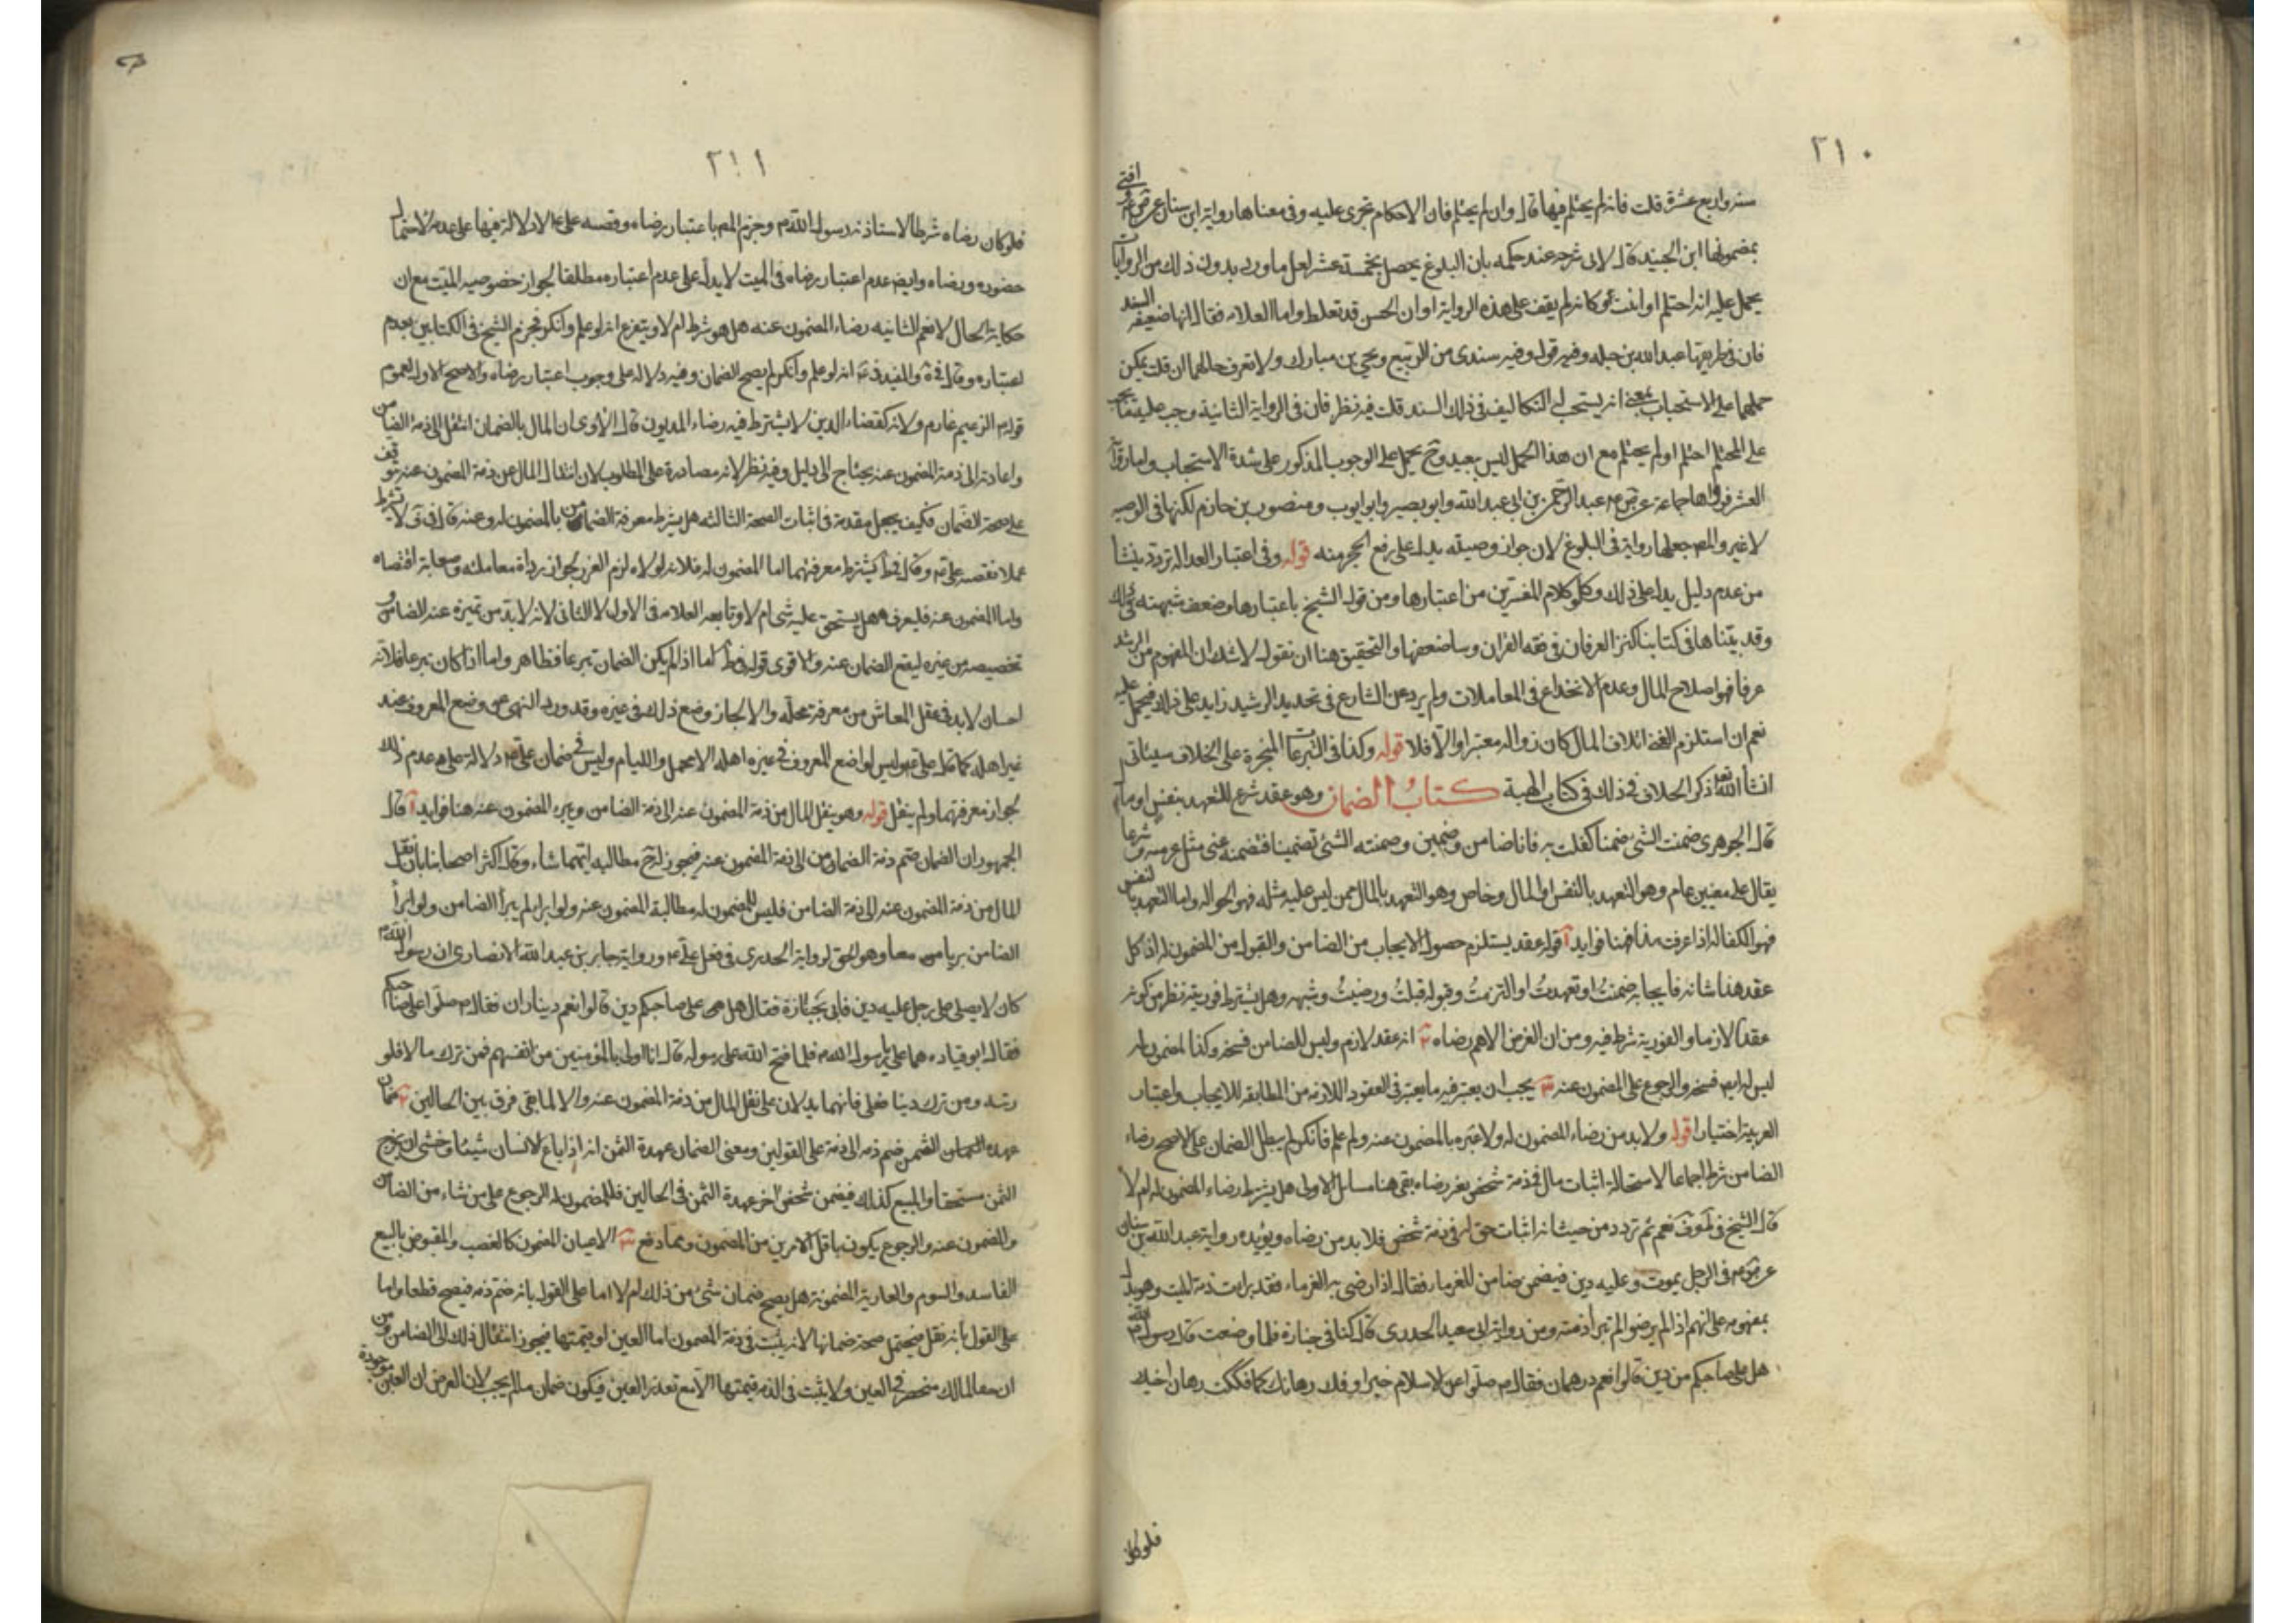 ٢١٠
سنة واربع عشرة قلت فانه لم يحتلم فيها قال وان لم يحتلم فان الاحكام تجرى عليه وفى معناها رواية ابن سنان عن افتى
بمضمونها ابن الجنيد قال لابى شرحه عند حكمه بان البلوغ يحصل بخمسة عشر لعل ماورد بدون ذلك من الروايات
يحمل عليه انه احتلم او انبت وكانه لم يقف على هذه الرواية او ان الحسن قد تعلط واما العلامه فقال انها ضعيفة السند
فان فى طريقها عبد الله بن جبله وفيه قول وفيه سندى من الربيع ويحيى بن مبارك ولا تعرف حالهما ان قلت يمكن
حملهما على الاستحباب بمعنى انه يستحب له التكاليف فى ذلك السند قلت فيه نظر فان فى الرواية الثانية وجب عليه
على المحتلم احتلم او لم يحتلم مع ان هذا الحمل ليس ببعيد وح يحمل على الوجوب المذكور على شدة الاستحباب واما
العشر فرواها جماعة عن عبد الرحمن بن ابى عبد الله وابو بصير وابو ايوب ومنصور بن حازم لكنها فى الوصيه
لا غير والمص جعلها رواية فى البلوغ لان جواز وصيته يدل على رفع الحجر منه قوله وفى اعتبار العدالة تردد ينشأ
من عدم دليل يدل على ذلك وكلام المفسرين من اعتبارها ومن قول الشيخ باعتبارها وضعف شبهته فى ذلك
وقد بيناها فى كتابنا كنز العرفان فى فقه القران وسا ضعفها والتحقيق هنا ان نقول لا شك ان المفهوم من الرشد
عرفا فهو اصلاح المال وعدم الانخداع فى المعاملات ولم يرد عن الشارع فى تحديد الرشيد زايد على ذلك فيحمل عليه
نعم ان استلزم الفسق اتلاف المال كان زواله معتبرا والا فلا قوله وكذا فى التبرعات المنجزة على الخلاف سياتى
انشأ الله تعالى ذكر الخلاف فى ذلك فى كتاب الهبة كتاب الضمان وهو عقد شرع للتعهد بنفس او مال
قال الجوهرى ضمنت الشى ضمنا كفلت به فانا ضامن وضمين وضمنته الشئ تضمينا فتضمنه عنى مثل غرمته وشرعا
يقال على معنيين عام وهو التعهد بالنفس او المال وخاص وهو التعهد بالمال ممن ليس عليه مثله فهو الحوالة واما التعهد بالنفس
فهو الكفالة اذا عرفت هذا فهنا فوايد آ قوله عقد يستلزم حصول الايجاب من الضامن والقبول من المضمون له اذ كل
عقد هذا شانه فايجابه ضمنت او تعهدت او التزمت وقبوله قبلت ورضيت وشبهه وهل يشترط فوريته نظر من كونه
عقدا لازما والفورية شرط فيه ومن ان الغرض الاهم رضاه ٢ انه عقد لازم وليس للضامن فسخه وكذا المضمون له
ليس له ايض فسخه والرجوع على المضمون عنه ٣ يجب ان يعتبر فيه ما يعتبر فى العقود اللازمه من المطابقه للايجاب واعتبار
العربية اختيارا قوله ولا بد من رضاء المضمون له ولا عبرة بالمضمون عنه ولو علم فانكر لم يبطل الضمان على الاصح رضاء
الضامن شرط اجماعا لاستحالة اثبات مال فى ذمة شخص بغير رضاه بقى هنا مسايل الاولى هل يشترط رضاء المضمون له ام لا
قال الشيخ فى ط وف نعم ثم تردد من حيث انه اثبات حق له فى ذمة شخص فلا بد من رضاه ويؤيده رواية عبد الله بن سنان
عن ص م فى الرجل يموت وعليه دين فيضمن ضامن للغرما فقال اذا رضى به الغرماء فقد برات ذمة الميت وهو يدل
بمفهومه على انهم اذا لم يرضوا لم تبرأ ذمته ومن رواية ابى سعيد الخدرى قال كنا فى جنازة فلما وضعت قال رسول الله
هل على صاحبكم من دين قالوا نعم درهمان فقال م صلوا عن الاسلام خيرا وفك رهانك كما فككت رهان اخيك
فلو كان
٢١١
فلو كان رضاه شرطا لاستاذنه رسول الله م وجزم المص باعتبار رضاه وقصه على ع لا دلالة فيها على عدمه لاحتمال
حضوره ورضاه وايض عدم اعتبار رضاه فى الميت لا يدل على عدم اعتباره مطلقا لجواز خصوصيه الميت مع ان
حكاية الحال لا تعم الثانيه رضاء المضمون عنه هل هو شرط ام لا ويتفرع انه لو علم وانكر فجزم الشيخ فى الكتابين بعدم
اعتباره وقال فى ية والمفيد فى عة انه لو علم وانكر لم يصح الضمان وفيه دلالة على وجوب اعتبار رضاه والاصح الاول لعموم
قوله م الزعيم غارم ولانه كقضاء الدين لا يشترط فيه رضاء المديون قال الاوى ان المال بالضمان انتقل الى ذمة الضامن
واعادته الى ذمة المضمون عنه يحتاج الى دليل وفيه نظر لانه مصادرة على المطلوب لان انتقال المال عن ذمة المضمون عنه توقف
على صحة الضمان فكيف يجعل مقدمة فى اثبات الصحة الثالثه هل يشترط معرفة الضامن بالمضمون له وعنه قال فى ف لا يشترط
عملا بقصه على م وقال فى ط يشترط معرفتهما اما المضمون له فلانه لولاه لزم الغرر لجواز رداة معاملته وصعابة اقتضاه
واما المضمون عنه فليعرف هل يستحق عليه شى ام لا وتابعه العلامه فى الاول لا الثانى لانه لا بد من تميزه عند الضامن و
تخصيصه من غيره ليقع الضمان عنه والاقوى قوله فى ط اما اذا لم يكن الضمان تبرعا فظاهر واما اذا كان تبرعا فلانه
احسان لا بد فى عقل المعاش من معرفة محله والا لجاز وضع ذلك فى غيره وقد ورد النهى عن وضع المعروف عند
غير اهله كما قال على م وليس لواضع المعروف فى غير اهله الا محمد اللئام وليس فى ضمان على م دلالة على عدم ذلك
لجواز معرفتهما ولم ينقل قوله وهو ينقل المال من ذمة المضمون عنه الى ذمة الضامن ويبرء المضمون عنه هنا فوايد آ قال
الجمهور ان الضمان ضم ذمة الضامن الى ذمة المضمون عنه فيجوز له ح مطالبه ايتهما شاء وقال اكثر اصحابنا بانه نقل
المال من ذمة المضمون عنه الى ذمة الضامن فليس للمضمون له مطالبة المضمون عنه ولو ابراه لم يبرأ الضامن ولو ابرأ
الضامن بريا معا وهو الحق لرواية الخدرى فى فعل على م ورواية جابر بن عبد الله الانصارى ان رسول الله م
كان لا يصلى على رجل عليه دين فاتى بجنازة فقال هل على صاحبكم دين قالوا نعم ديناران فقال م صلوا على صاحبكم
فقال ابو قتاده هما على يا رسول الله م فلما فتح الله على رسوله قال انا اولى بالمؤمنين من انفسهم فمن ترك مالا فلو
رثته ومن ترك دينا فعلى فانهما يدلان على نقل المال من ذمة المضمون عنه والا لما بقى فرق بين الحالين ٢ ضمان
عهدة الثمن ضم ذمه الى ذمة على القولين ومعنى الضمان عهدة الثمن انه اذا باع الانسان شيئا وخشى ان يخرج
الثمن مستحقا والمبيع كذلك فيضمن شخص اخر عهدة الثمن فى الحالين فللمضمون له الرجوع على من شاء من الضامن
والمضمون عنه والرجوع يكون باقل الامرين من المضمون ومما دفع ٣ الاعيان المضمون كالغصب والمقبوض بالبيع
الفاسد والسوم والعارية المضمونة هل يصح ضمان شئ من ذلك ام لا اما على القول بانه ضم ذمه فيصح قطعا واما
على القول بانه نقل فيحتمل صحة ضمانها لانه يثبت فى ذمة المضمون اما العين او قيمتها فيجوز انتقال ذلك الى الضامن ومن
ان حق المالك منحصر فى العين ولا يثبت فى الذمه قيمتها الا مع تعذر العين فيكون ضمان ما لم يجب لان الفرض ان العين موجودة